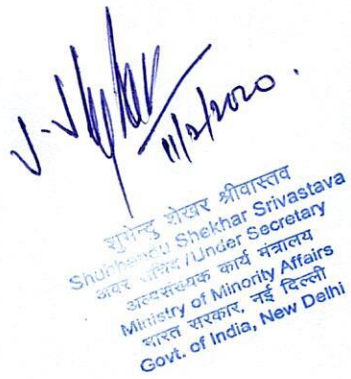 11/2/2020.
शुभेन्दु शेखर श्रीवास्तव
Shubhendu Shekhar Srivastava
अवर सचिव /Under Secretary
अल्पसंख्यक कार्य मंत्रालय
Ministry of Minority Affairs
भारत सरकार, नई दिल्ली
Govt. of India, New Delhi